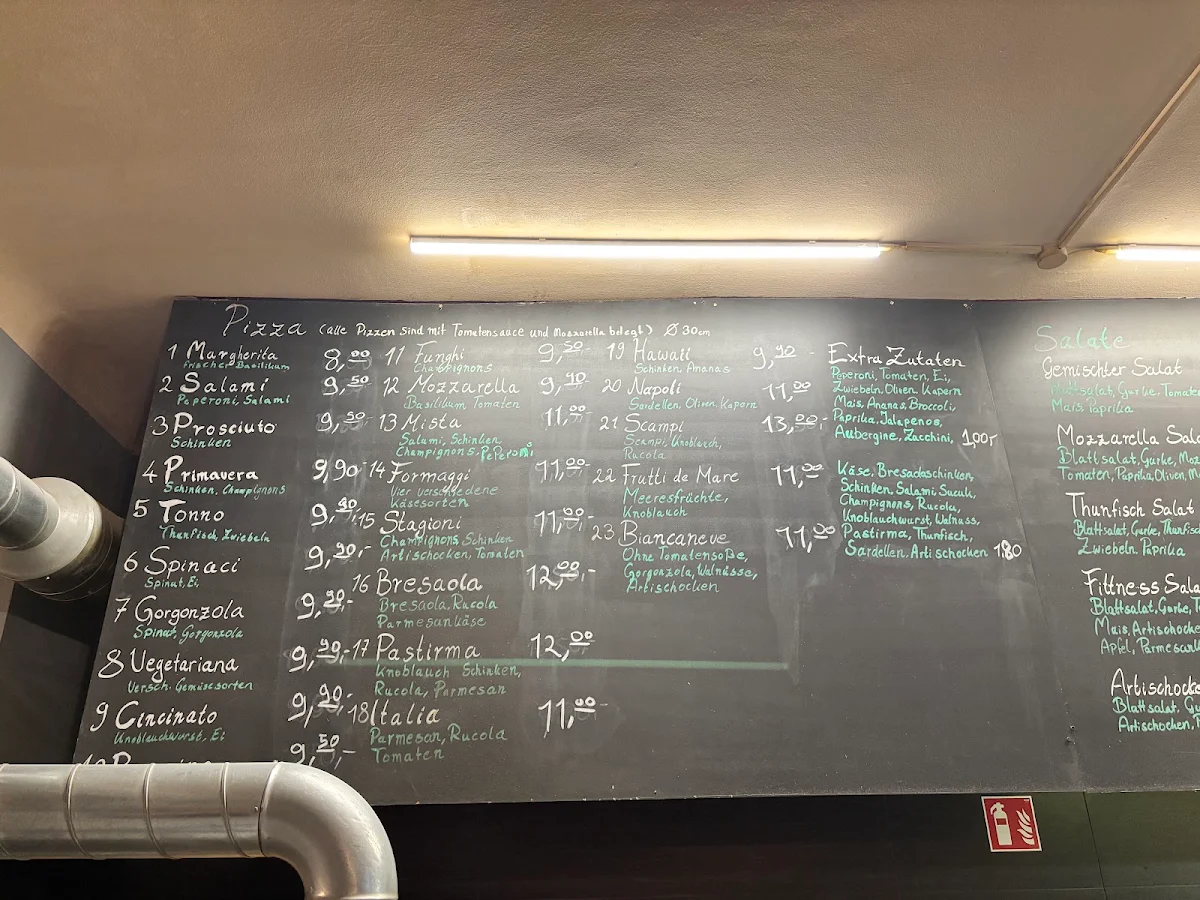 Pizza (alle Pizzen sind mit Tomatensauce und Mozzarella belegt) Ø 30cm
1 Margherita 8,00
frischer Basilikum
2 Salami 9,50
Peperoni, Salami
3 Prosciuto 9,50
Schinken
4 Primavera 9,90
Schinken, Champignons
5 Tonno 9,90
Thunfisch, Zwiebeln
6 Spinaci 9,90,-
Spinat, Ei
7 Gorgonzola 9,90,-
Spinat, Gorgonzola
8 Vegetariana 9,90,-
Versch. Gemüsesorten
9 Cincinato 9,90,-
Knoblauchwurst, Ei
9,50,-
11 Funghi 9,50,-
Champignons
12 Mozzarella 9,90
Basilikum Tomaten
13 Mista 11,00
Salami, Schinken
Champignons, Peperoni
14 Formaggi 11,00
Vier verschiedene
Käsesorten
15 Stagioni 11,00
Champignons, Schinken
Artischocken, Tomaten
16 Bresaola 12,00,-
Bresaola, Rucola
Parmesankäse
17 Pastirma 12,00
Knoblauch Schinken,
Rucola, Parmesan
18 Italia 11,00
Parmesan, Rucola
Tomaten
19 Hawaii 9,90
Schinken, Ananas
20 Napoli 11,00
Sardellen, Oliven, Kapern
21 Scampi 13,00,-
Scampi, Knoblauch,
Rucola
22 Frutti de Mare 11,00
Meeresfrüchte,
Knoblauch
23 Biancaneve 11,00
Ohne Tomatensoße,
Gorgonzola, Walnüsse,
Artischocken
Extra Zutaten
Peperoni, Tomaten, Ei,
Zwiebeln, Oliven, Kapern
Mais, Ananas, Broccoli,
Paprika, Jalapenos,
Aubergine, Zucchini,
Käse, Bresaolaschinken,
Schinken, Salami, Sucuk,
Champignons, Rucola,
Knoblauchwurst, Walnuss,
Pastirma, Thunfisch,
Sardellen, Artischocken 180
Salate
Gemischter Salat
Blattsalat, Gurke, Tomate
Mais, Paprika
Mozzarella Sala
Blattsalat, Gurke, Moz
Tomaten, Paprika, Oliven, M
Thunfisch Salat
Blattsalat, Gurke, Thunfisc
Zwiebeln, Paprika
Fittness Sala
Blattsalat, Gurke, T
Mais, Artischocke
Apfel, Parmesank
Artischocke
Blattsalat, Gu
Artischocken, P